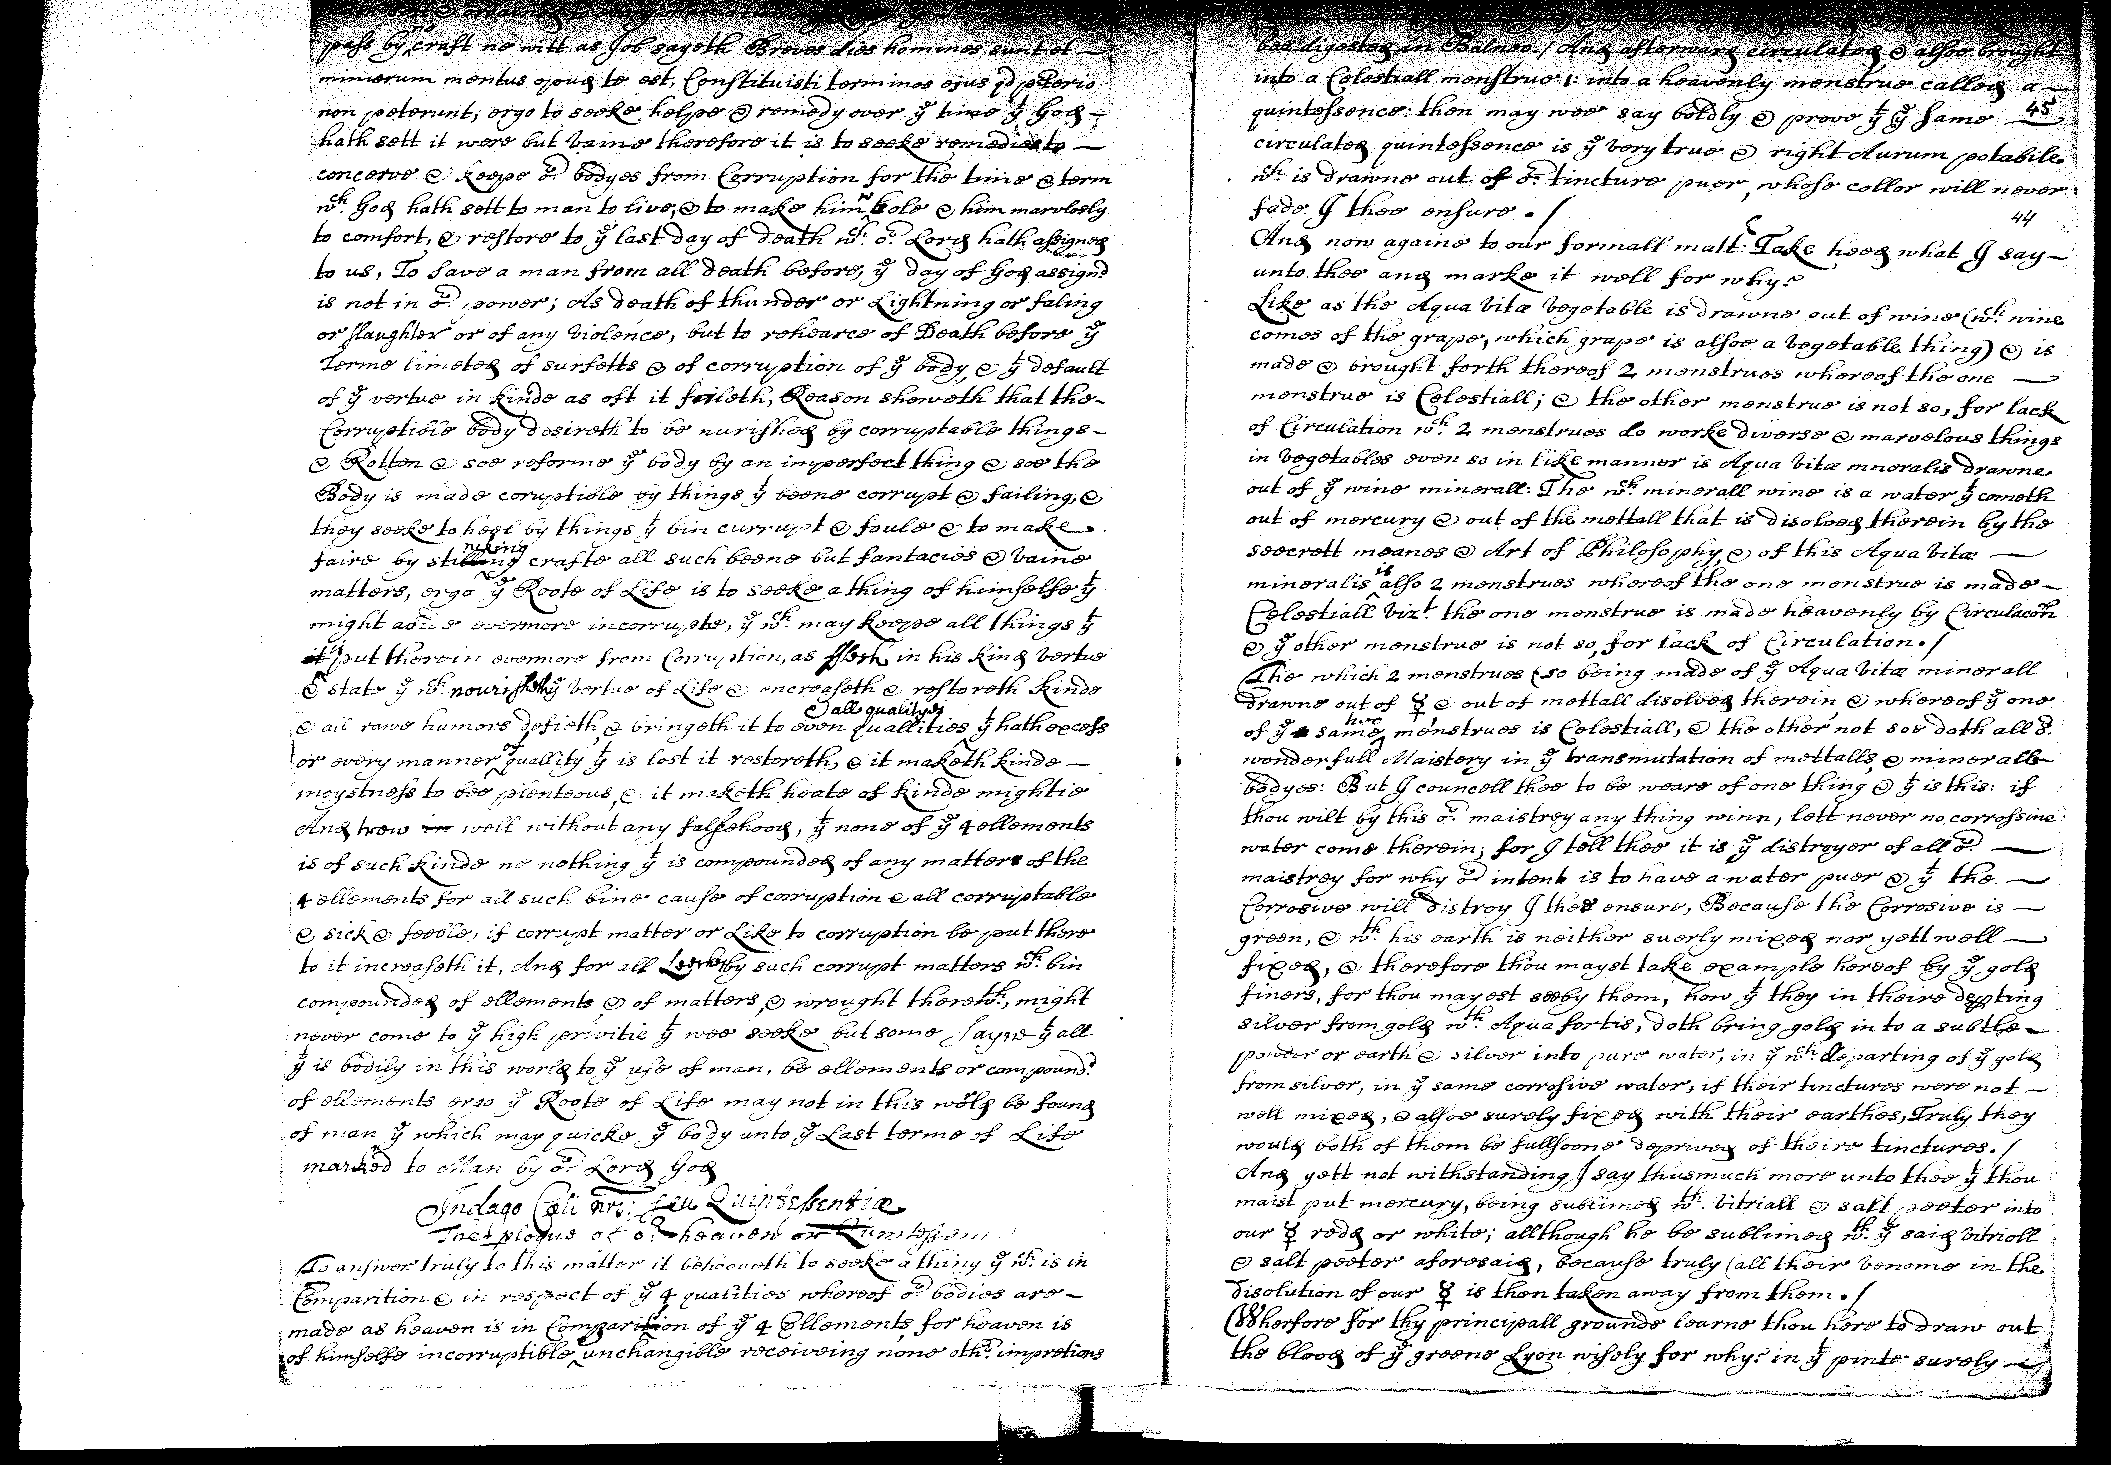 pass by craft ne witt as Job sayeth Breves dies hominis sunt et —
minierum mentus apud te est, Constituisti terminos ejus qd pterio
non poterunt, ergo to seeke helpe & remedy over ye time yt God —
hath sett it were but vaine therefore it is to seeke remedies to —
concerve & keepe or bodyes from Corruption for the time & term
wch God hath sett to man to live, & to make him hole & him marvlosly
to comfort, & restore to ye last day of death wch or Lord hath assigned
to us, To save a man from all death before, ye day of God assignd
is not in or power; As death of thunder or Lightning or faling
or slaughter or of any violence, but to rehearce of Death before ye
Terme limeted of surfetts & of corruption of ye body, & yt default
of ye vertue in kinde as oft it faileth, Reason sheweth that the —
Corruptible body desireth to be nurished by corruptable things —
& Rotten & soe reforme ye body by an imperfect thing & soe the
Body is made coruptible by things yt beene corrupt & failing, &
they seeke to heel by things yt bin currupt & foule & to make —
faire by stilling crafte all such beene but fantacies & vaine
matters, ergo ye Roote of Life is to seeke a thing of himselfe yt
might abide evermore incorrupte, ye wch may keepe all things yt
it put therein evermore from Corruption, as flesh in his kind vertue
& state ye wch nourishe ye vertue of Life & encreaseth & restoreth kinde
& all qualityes
& all rawe humors defieth, & bringeth it to even quallities yt hath excess
or every manner of quallity yt is lost it restoreth, & it maketh kinde —
moystness to bee plenteous, & it maketh heate of kinde mightie
And trow in well without any falsehood, yt none of ye 4 ellements
is of such kinde ne nothing yt is compounded of any matters of the
4 ellements for all such bine cause of corruption & all corruptable
& sick & feeble, if corrupt matter or Like to corruption be put there
to it increaseth it, And for all by such corrupt matters wch bin
compounded of ellements & of matters, & wrought therewth, might
never come to ye high privitie yt wee seeke but some sayne yt all
yt is bodily in this world to ye use of man, be ellements or compound
of ellements ergo ye Roote of Life may not in this world be found
of man ye which may quicke ye body unto ye Last terme of Life
marked to Man by or Lord God
Indago Cæli nri; seu Quintessentiæ
of or heaven or Quintessen
To answer truly to this matter it behooveth to seeke a thing ye wch is in
Comparition & in respect of ye 4 qualities whereof or bodies are —
made as heaven is in Comparition of ye 4 Ellements, for heaven is
of himselfe incorruptible unchangible receiveing none othr impretions
bee digested in Balneo./ And afterward circulated & alsoe brought
into a Celestiall menstrue 1: into a heavenly menstrue called a —
45
quintessence: then may wee say boldly & prove yt ye same
circulated quintessence is ye very true & right Aurum potabile
wch is drawne out of or tincture puer, whose collor will never
fade I thee ensure ./
44
And now againe to our formall matt Take heed what I say —
unto thee and marke it well for why?
Like as the Aqua Vitæ Vegetable is drawne out of wine (wch wine
comes of the grape, which grape is alsoe a vegetable thing) & is
made & brought forth thereof 2 menstrues whereof the one —
menstrue is Celestiall; & the other menstrue is not so, for lack
of Circulation wch 2 menstrues do worke diverse & marvelous things
in vegetables even so in like manner is Aqua Vitæ mneralis drawne
out of ye wine minerall: The wch minerall wine is a water yt cometh
out of mercury & out of the mettall that is disolved therein by the
seecrett meanes & Art of Philosophy, & of this Aqua Vitæ —
mineralis is also 2 menstrues whereof the one menstrue is made —
Celestiall vizt the one menstrue is made heavenly by Circulacon
& ye other menstrue is not so, for lack of Circulation./
The which 2 menstrues (so being made of ye Aqua Vitæ minerall
drawne out of ☿ & out of mettall disolved therein & whereof ye one
of ye same two menstrues is Celestiall, & the other not soe doth all or
wonderfull Maistery in ye transmutation of mettalls, & minerall
bodyes: But I councell thee to be weare of one thing & yt is this: if
thou wilt by this or maistrey any thing winn, lett never no corrossive
water come therein; for I tell thee it is ye distroyer of all or —
maistrey for why or intent is to have a water puer & yt the —
Corrosive will distroy I thee ensure, Because the Corrosive is —
green, & wth his earth is neither suerly mixed nor yett well —
fixed, & therefore thou mayst take example hereof by ye gold
finers, for thou mayest see by them, how yt they in theire depting
silver from gold wth Aqua fortis, doth bring gold in to a subtle —
pouder or earth & silver into pure water, in ye wch departing of ye gold
from silver, in ye same corrosive water, if their tinctures were not —
well mixed, & alsoe surely fixed with their earthes, Truly they
would both of them be full soone deprived of theire tinctures./
And yett not withstanding I say thus much more unto thee yt thou
maist put mercury, being sublimed wth vitriall & salt peeter into
our ☿ redd or white; allthough he be sublimed wth ye said vitrioll
& salt peeter aforesaid, because truly (all their venome in the
disolution of our ☿ is then taken away from them./
Wherfore for thy principall grounde learne thou here to draw out
the blood of ye greene Lyon wisely for why? in yt pinte surely —